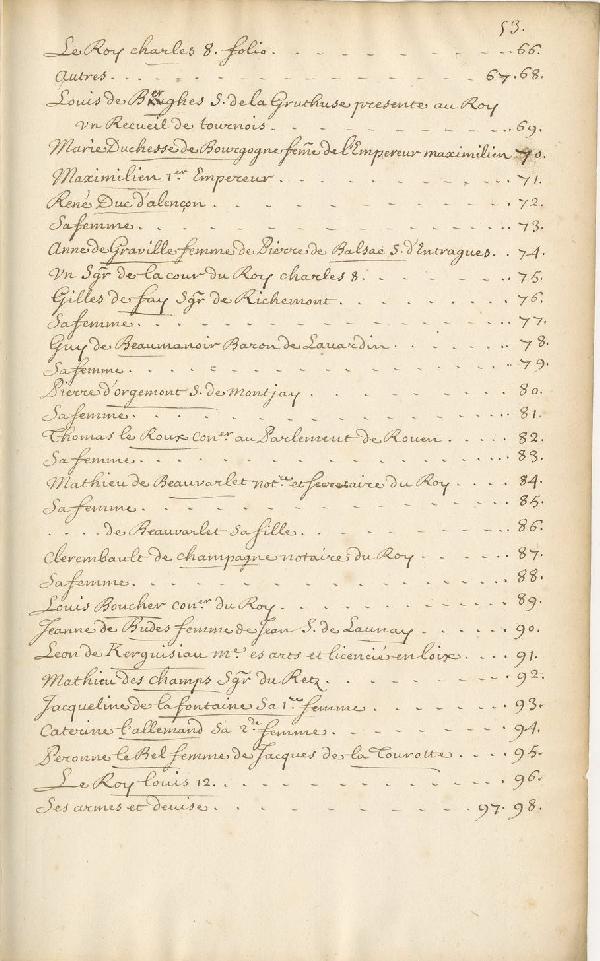 53.
Le Roy charles 8. folio. 66.
autres. 67. 68.
Louis de Brughes S. de la Gruthuse presente au Roy
vn Recueil de tournois. 69.
Marie Duchesse de Bourgogne feme de l'Empereur maximilien 70.
Maximilien 1.er Empereur. 71.
René Duc d'alençon. 72.
Sa femme. 73.
Anne de Graville femme de Pierre de Balsac S. d'Entragues. 74.
Vn Sgr de la cour du Roy charles 8. 75.
Gilles de fay Sgr de Richemont. 76.
Sa femme. 77.
Guy de Beaumanoir Baron de Lauardin. 78.
Sa femme. 79.
Pierre d'orgemont S. de Montjay. 80.
Sa femme. 81.
Thomas le Roux coner au Parlement de Rouen. 82.
Sa femme. 83.
Mathieu de Beauvarlet notre et secretaire du Roy. 84.
Sa femme. 85.
.... de Beauvarlet Sa fille. 86.
Clerembault de champagne notaire du Roy. 87.
Sa femme. 88.
Louis Boucher coner du Roy. 89.
Jeanne de Budes femme de Jean S. de Launay. 90.
Leon de Kerguisiau me es arts et licencié en loix. 91.
Mathieu des champs Sgr du Retz. 92.
Jacqueline de la fontaine Sa 1.re femme. 93.
Caterine l'allemand Sa 2.de femme. 94.
Peronne le Bel femme de Jacques de la Tourotte. 95.
Le Roy louis 12. 96.
Ses armes et deuise. 97. 98.